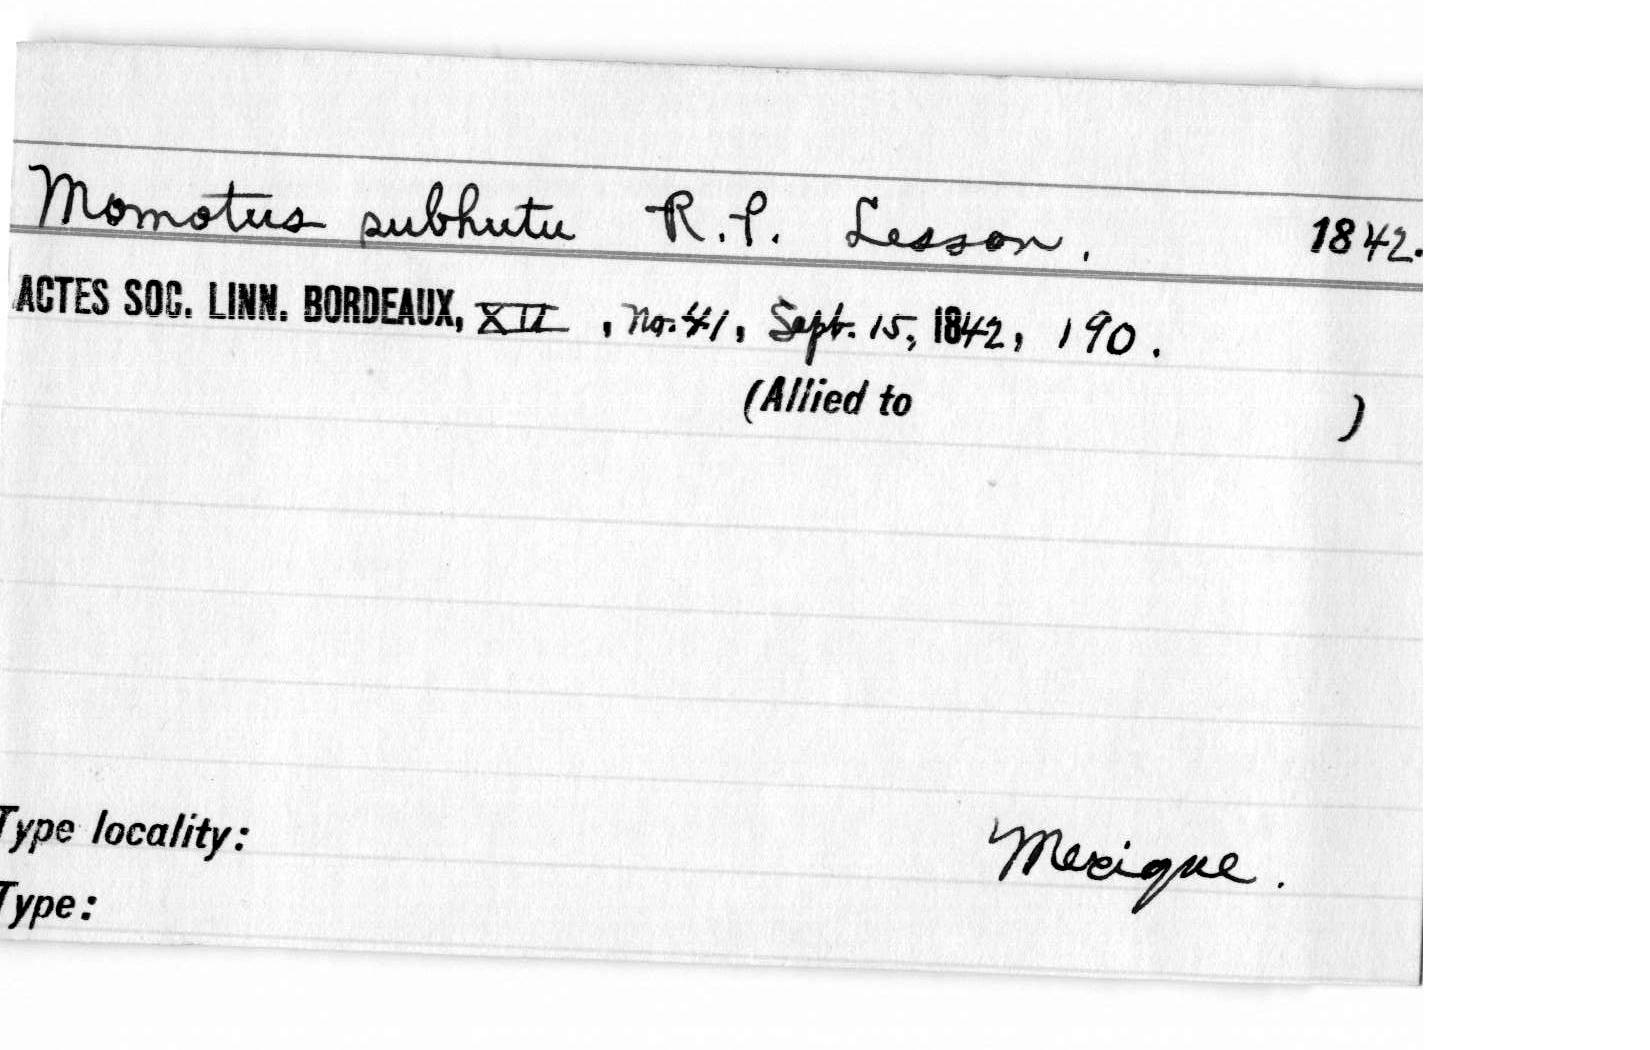 Momotus subhutu R.P. Lesson. 1842.
ACTES SOC. LINN. BORDEAUX, XII, No. 41, Sept. 15, 1842, 190.
(Allied to )
Type locality: Mexique.
Type: